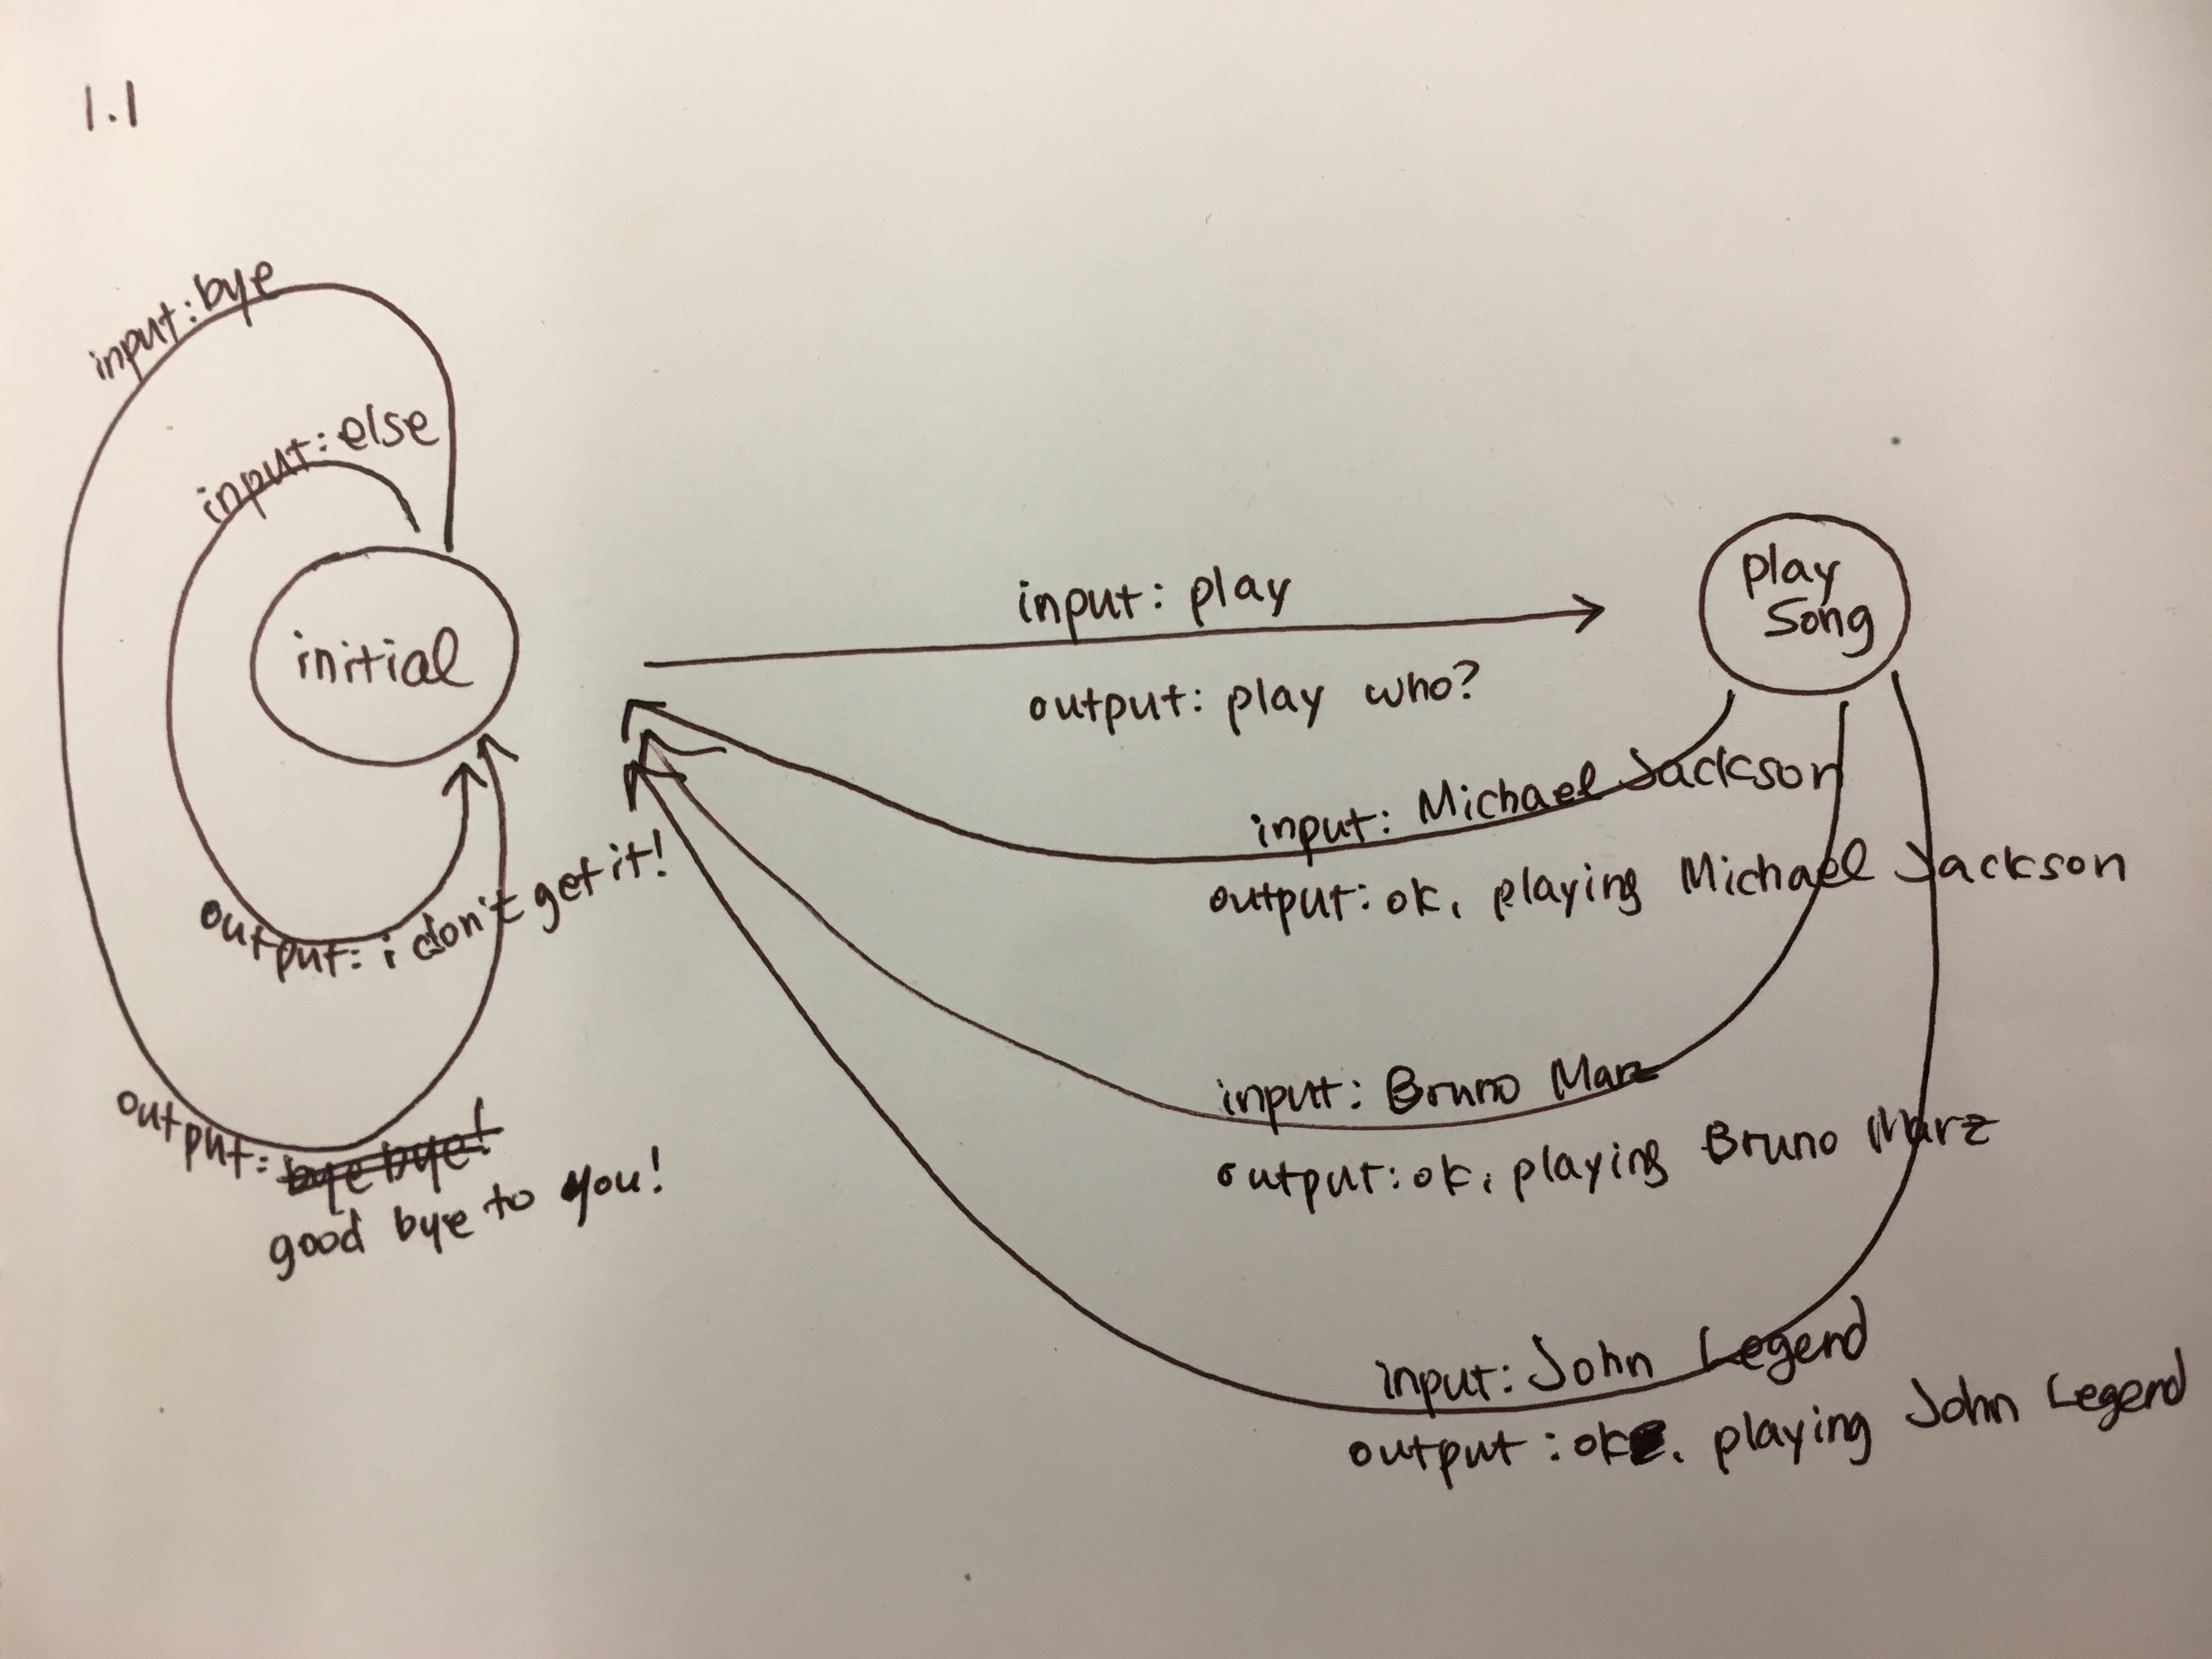 1.1
input: bye
input: else
initial
output: i don't get it!
output: bye bye!
good bye to you!
input: play
output: play who?
play
song
input: Michael Jackson
output: ok, playing Michael Jackson
input: Bruno Marz
output: ok, playing Bruno Marz
input: John Legend
output: ok. playing John Legend